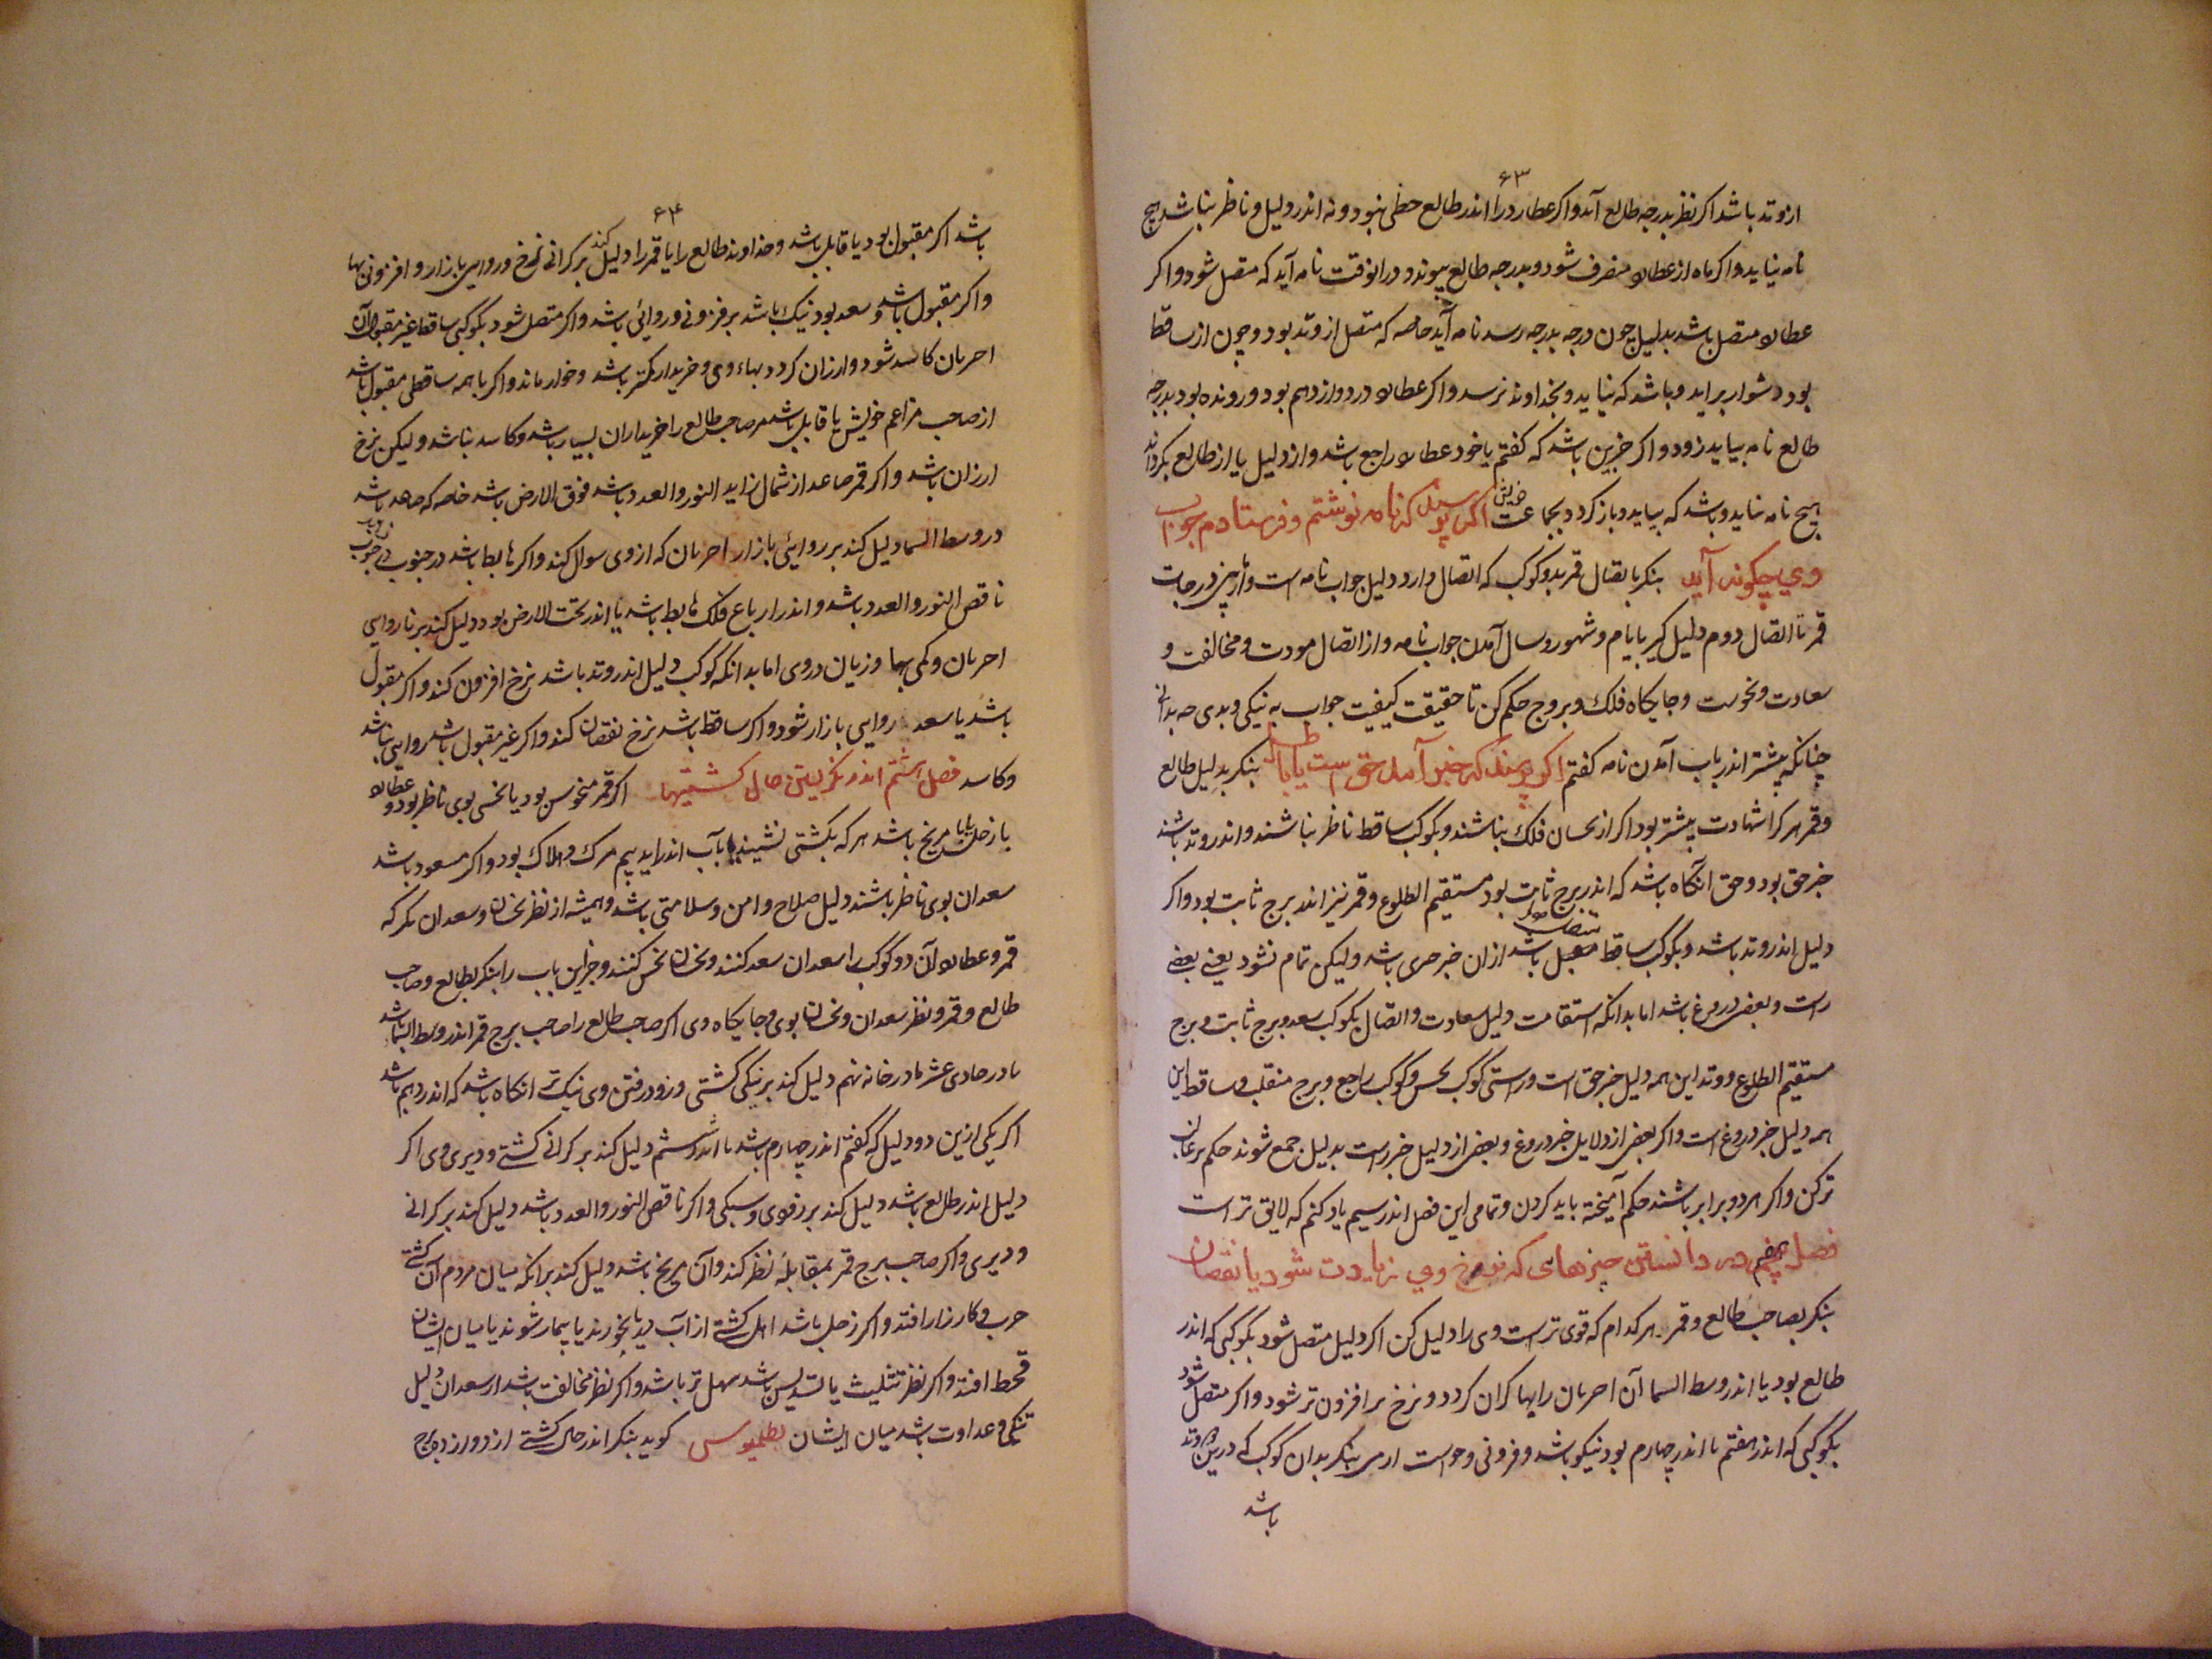 ۶۳
از وتد باشد اکر نظر بدرجه طالع آمد واکر عطارد را اندر طالع حظی نبود و نه اندر دلیل و ناظر نباشد هیچ
نامه نیاید واکر ماه از عطارد منصرف شود و بدرجه طالع پیوندد در انوقت نامه آید که متصل شود واکر
عطارد متصل باشد بدلیل چون درجه بدرجه رسد نامه آید خاصه که متصل از وتد بود و چون از ساقط
بود دشوار براید و باشد که نیاید و بخداوند نرسد واکر عطارد در دوازدهم بود و رونده بود بدرجه
طالع نامه بیاید زود واکر جزین باشد که کفتم یا خود عطارد راجع باشد و از دلیل یا از طالع بکردد
هیچ نامه نیاید و باشد که بیاید و باز کردد بجماعت خویش اکر پرسند که نامه نوشتم و فرستادم جواب
وی چکونه آید بنکر باتصال قمر بدو کوکب که اتصال دارد دلیل جواب نامه است و از پس درجات
قمر تا اتصال دوم دلیل کیر بایام و شهور و سال آمدن جواب نامه و از اتصال مودت و مخالفت و
سعادت و نحوست و جایکاه فلک و بروج حکم کن تا حقیقت کیفیت جواب به نیکی و بدی بدانی
چنانکه پیشتر اندر باب آمدن نامه کفتم اکر پرسند که خبر آمد حق است یا باطل بنکر بدلیل طالع
و قمر هر کرا شهادت بیشتر بود اکر از نحسان فلک نباشند و بکوکب ساقط ناظر نباشند و اندر وتد باشند
خبر حق بود و حق انکاه باشد که اندر برج ثابت بود مستقیم الطلوع و قمر نیز اندر برج ثابت بود واکر
دلیل اندر وتد باشد و بکوکب ساقط متصل باشد ازان خبر باشد ولیکن تمام نشود یعنی بعضی
راست و بعضی دروغ باشد اما بدانکه استقامت دلیل سعادت و اتصال بکوکب سعد و برج ثابت و برج
مستقیم الطلوع و وتد این همه دلیل خبر حق است و راستی کوکب نحس و کوکب راجع و برج منقلب و ساقط این
همه دلیل خبر دروغ است واکر بعضی از دلایل خبر دروغ و بعضی از دلیل خبر راست بدلیل جمع شوند حکم بر غالب
تر کن واکر هر دو برابر باشند حکم آمیخته باید کردن و تمامی این فصل اندر سیم یاد کنم که لایق تر است
فصل هفتم در دانستن چیزهای که نرخ وی زیادت شود یا نقصان
بنکر بصاحب طالع و قمر هر کدام که قوی تر است وی را دلیل کن اکر دلیل متصل شود بکوکبی که اندر
طالع بود یا اندر وسط السما آن احریان را بها کران کردد و نرخ بر افزون تر شود واکر متصل شود
بکوکبی که اندر هفتم یا اندر چهارم بود نیکو باشد و فزونی بنکر بدان کوکب که درین دو وتد
باشد
۶۴
باشد اکر مقبول بود یا قابل باشد و خداوند طالع را یا قمر را دلیل کند بر کرانی نرخ و روایی بازار و افزونی بها
واکر مقبول باشد و سعد بود نیک باشد بر فزونی و روائی باشد واکر متصل شود بکوکبی ساقط غیر مقبول آن
احریان کاسد شود و ارزان کردد بهاء وی و خریدار کمتر باشد و خوار ماند واکر با همه ساقطی مقبول باشد
از صاحب مزاعم خویش یا قابل باشد مر صاحب طالع را خریداران بسیار باشد و کاسد نباشد ولیکن نرخ
ارزان باشد واکر قمر صاعد از شمال زاید النور والعدد باشد فوق الارض باشد خاصه که صاعد باشد
در وسط السما دلیل کند بر روایئی بازار احریان که از وی سوال کند واکر هابط باشد در جنوب
ناقص النور والعدد باشد و اندر ارباع فلک هابط باشد یا اندر تحت الارض بود دلیل کند بر ناروایی
احریان و کمی بها و زیان در وی اما بدانکه کوکب دلیل اندر وتد باشد نرخ افزون کند واکر مقبول
باشد یا سعد روایی بازار شود واکر ساقط باشد نرخ نقصان کند واکر غیر مقبول باشد روایی نباشد
و کاسد فصل هشتم اندر نکریستن حال کشتیها اکر قمر منحوس بود یا نحسی بوی ناظر بود و عطارد
با زحل یا با مریخ باشد هر که بکشتی نشیند یا بآب اندر اید بیم مرک و هلاک بود واکر مسعود باشد
سعدان بوی ناظر باشند دلیل صلاح و امن و سلامتی باشد و همیشه از نظر نحسان و سعدان نکر که
قمر و عطارد آن دو کوکب را سعدان سعد کنند و نحسان نحس کنند و جز این باب را بنکر بطالع و صاحب
طالع و قمر و نظر سعدان و نحسان بوی و جایکاه وی اکر صاحب طالع را صاحب برج قمر اندر وسط السما باشد
یا در حادی عشر یا در خانه نهم دلیل کند بر نیکی کشتی و زود رفتن وی نیک تر انکاه باشد که اندر دهم باشد
اکر یکی ازین دو دلیل که کفتم اندر چهارم باشد یا اندر ششم دلیل کند بر کرانی کشتی و دیری وی اکر
دلیل اندر طالع باشد دلیل کند بر زودی و سبکی واکر ناقص النور والعدد باشد دلیل کند بر کرانی
و دیری واکر صاحب برج قمر بمقابلهٔ نظر کند و آن مریخ باشد دلیل کند برانکه میان مردم آن کشتی
حرب و کارزار افتد واکر زحل باشد اهل کشتی از آب دریا بخورند یا بیمار شوند یا میان ایشان
قحط افتد واکر نظر تثلیث یا تسدیس باشد سهل تر باشد واکر نظر مخالفت باشد از سعدان دلیل
تنکی و عداوت باشد میان ایشان بطلمیوس کوید بنکر اندر حال کشتی از دوازده برج